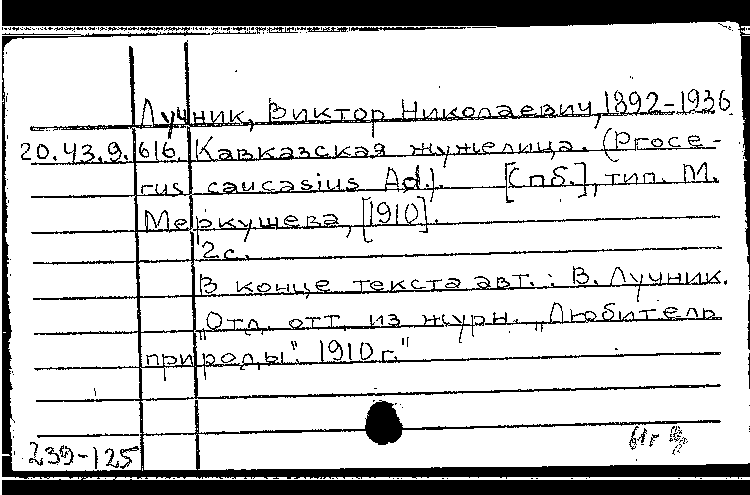 Лучник, Виктор Николаевич, 1892-1936
20.43.9.616 Кавказская жужелица. (Proce-
rus caucasius Ad.). [Спб.], тип. М.
Меркушева, [1910].
2с.
В конце текста авт.: В. Лучник.
„Отд. отт. из журн. „Любитель
природы". 1910 г."
239-125
61г